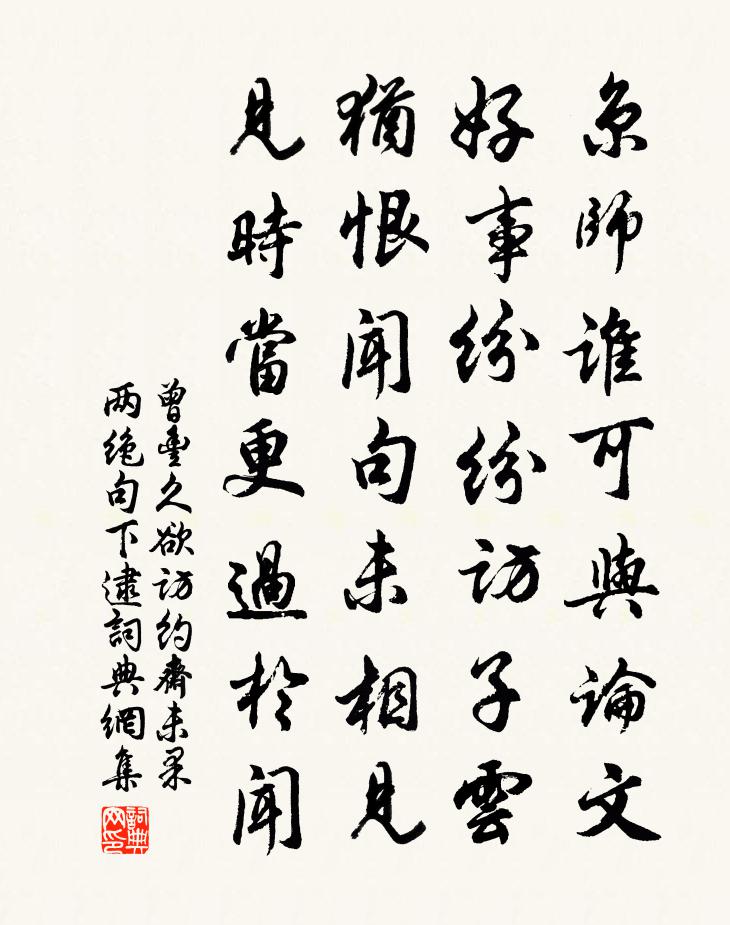 京師誰可與論文
好事紛紛訪子雲
猶恨聞句未相見
見時當更過於聞
曾豐久欲訪約齋未果
两绝句下逮詞典網集
詞典
网印